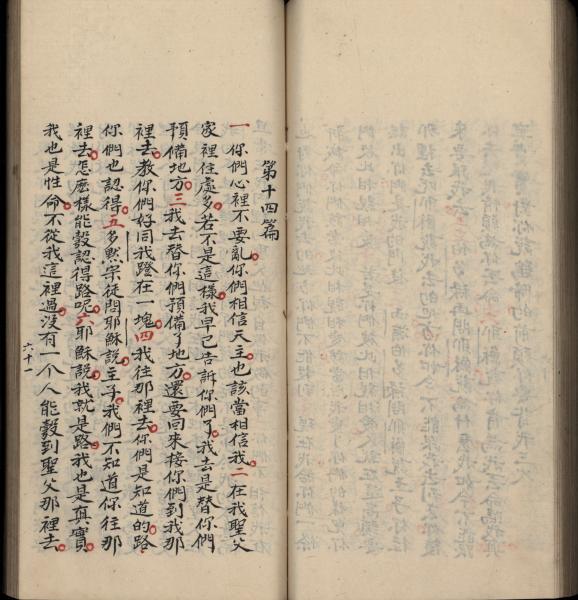 第十四篇
一你們心裡不要亂你們相信天主也該當相信我二在我聖父
家裡住處多若不是這樣我早已告訴你們了我去是替你們
預備地方三我去替你們預備了地方還要回來接你們到我那
裡去教你們好同我蹬在一塊四我往那裡去你們是知道的路
你們也認得五多黙宗徒問耶穌說主乎我們不知道你往那
裡去怎麼樣能彀認得路呢六耶穌說我就是路我也是真實
我也是性命不從我這裡過沒有一個人能彀到聖父那裡去
六十一